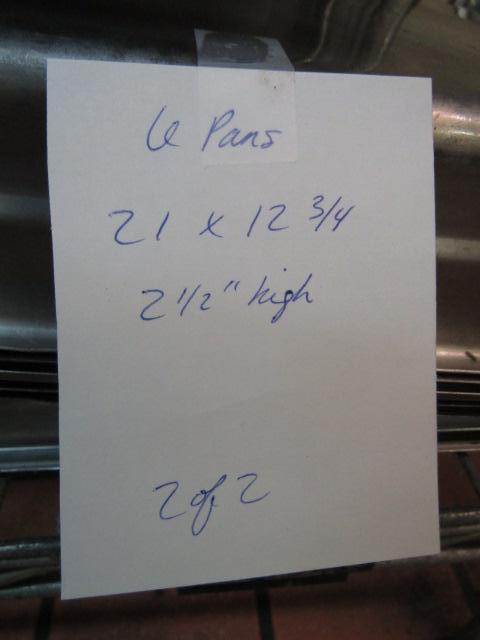 6 Pans
21 x 12 3/4
2 1/2" high
2 of 2